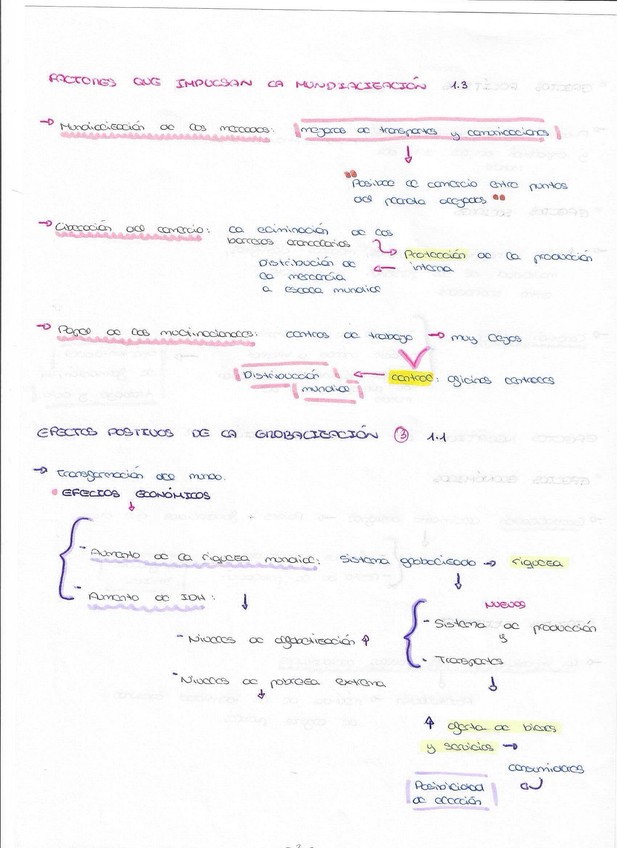 FACTORES QUE IMPULSAN LA MUNDIALIZACIÓN 1.3
→ Mundialización de los mercados: mejoras de transportes y comunicaciones
↓
"Posible el comercio entre puntos
del planeta alejados"
→ Liberación del comercio: la eliminación de las
barreras arancelarias
→ Protección de la producción
interna
Distribución de ←
la mercancía
a escala mundial
→ Papel de las multinacionales: centros de trabajo → muy lejos
Distribución ← central: oficinas centrales
mundial
EFECTOS POSITIVOS DE LA GLOBALIZACIÓN ③ 1.1
→ Transformación del mundo.
• EFECTOS ECONÓMICOS
↓
- Aumento de la riqueza mundial: Sistema globalizado → riqueza
- Aumento de IDH: ↓ ↓
NUEVOS
- Niveles de alfabetización ↑
- Sistema de producción
y
- Transportes
- Niveles de pobreza extrema
↓ ↓
↑ oferta de bienes
y servicios →
consumidores
Posibilidad
de elección
- 2 -